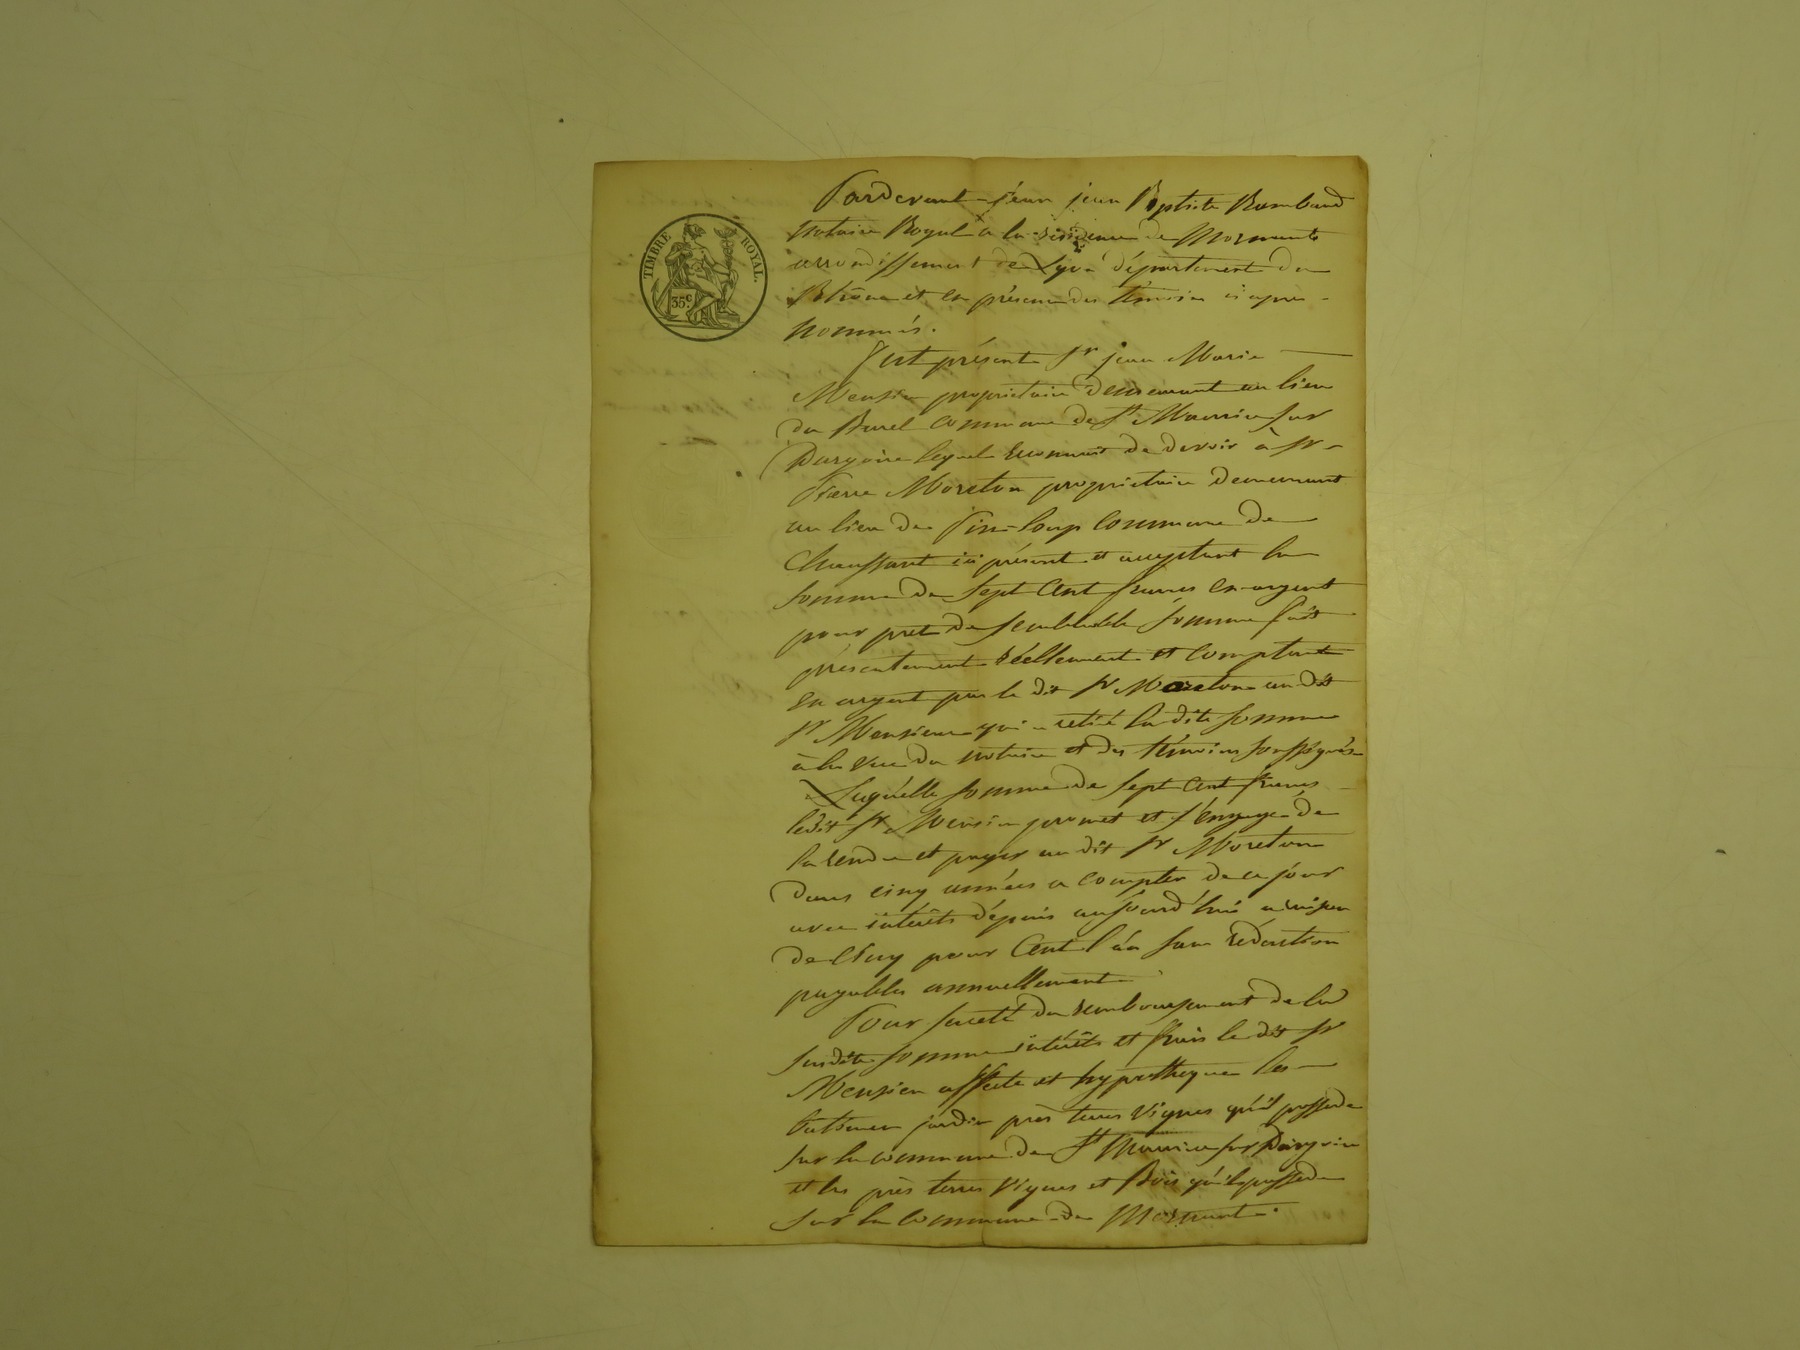 TIMBRE ROYAL.
35c.
Pardevant jean Baptiste Rambaud
Notaire Royal à la résidence de Mornant
arrondissement de Lyon département du
Rhône et en présence des témoins ci après
nommés.
fut présent Sr jean Marie
propriétaire demeurant au lieu
du Burel commune de St Maurice sur
Dargoire lequel reconnait de devoir à Sr
Pierre Moreton propriétaire demeurant
au lieu de Pin-loup commune de
Chaussant ici présent et acceptant la
somme de sept cent francs en argent
pour pret de semblable somme fait
présentement réellement et comptant
en argent par le dit Sr Moreton au dit
Sr qui a retiré la dite somme
à la vue du notaire et des témoins soussignés
Laquelle somme de sept cent francs
ledit Sr promet et s'engage de
la rendre et payer au dit Sr Moreton
dans cinq années a compter de ce jour
avec intérêts dépuis aujourd'hui a raison
de cinq pour cent l'an sans réduction
payables annuellement
Pour sureté du remboursement de la
susdite somme intérêts et frais le dit Sr
affecte et hypotheque les
batimens jardin près terres vignes qu'il possede
sur la commune de St Maurice sur Dargoire
et les près terres vignes et Bois qu'il possede
sur la commune de Mornant.